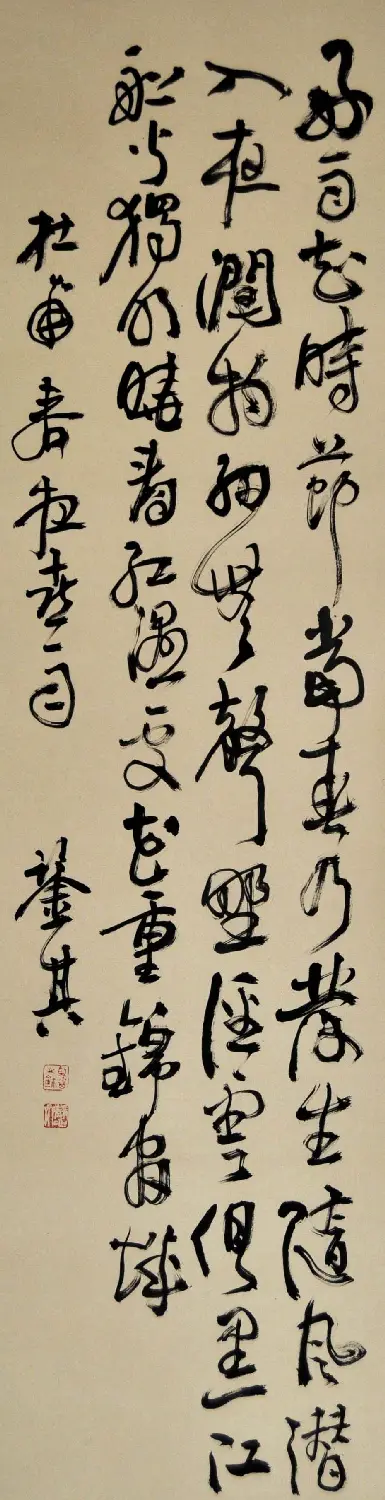 好雨知時節當春乃發生隨風潛
入夜潤物細無聲野徑雲俱黑江
船火獨明曉看紅濕處花重錦官城
杜甫春夜喜雨 其